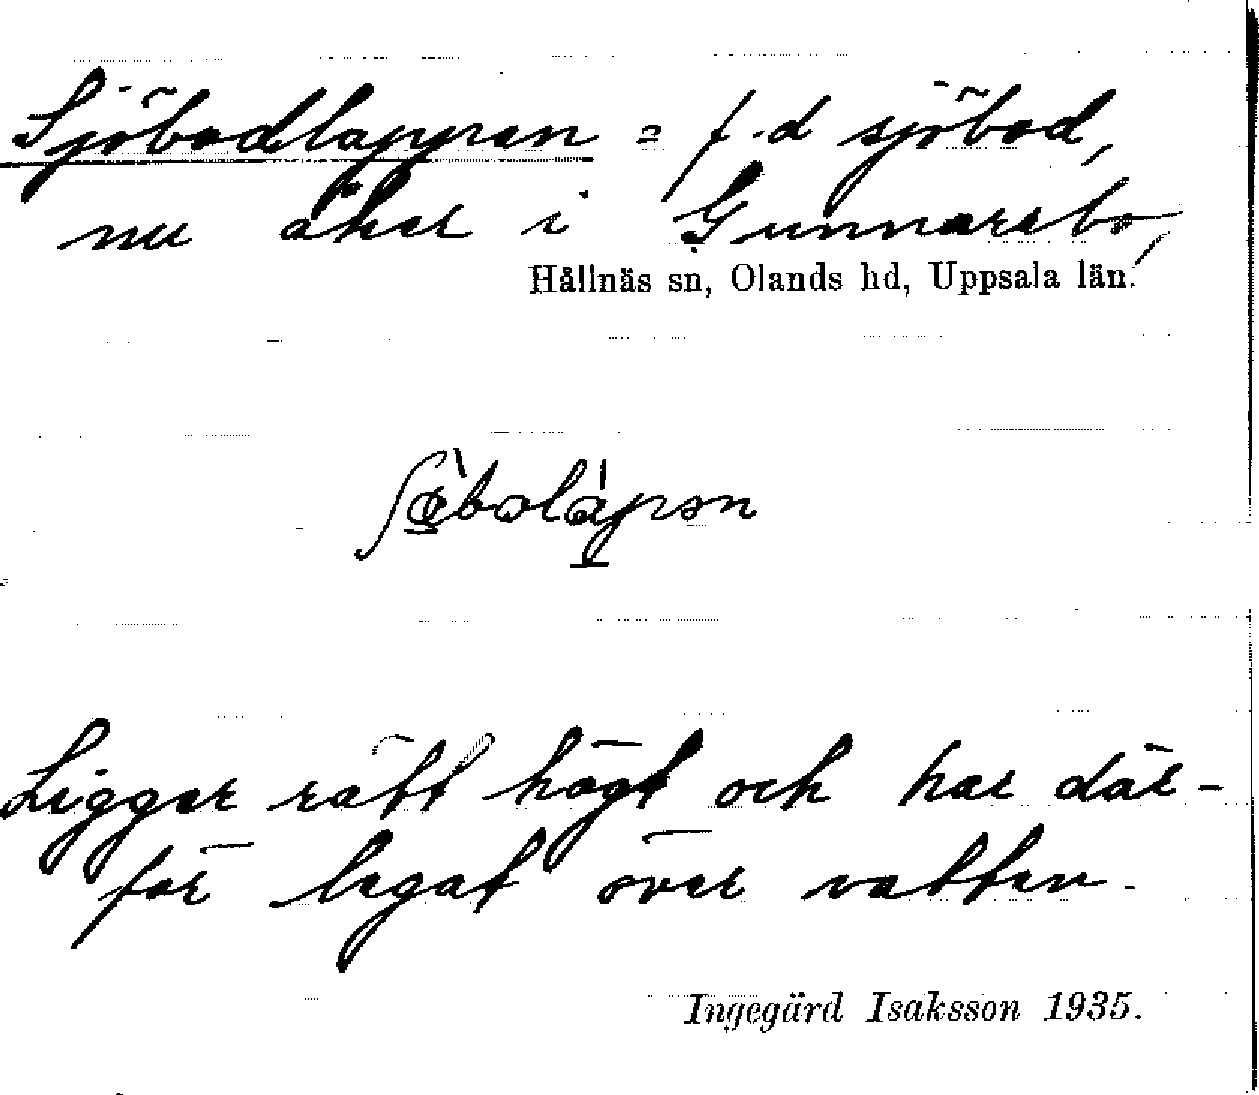 Sjöbodlappen = f.d sjöbod,
nu åker i Gunnarsbo,
Hållnäs sn, Olands hd, Uppsala län.
Ligger rätt högt och har där-
för legat över vatten.
Ingegärd Isaksson 1935.